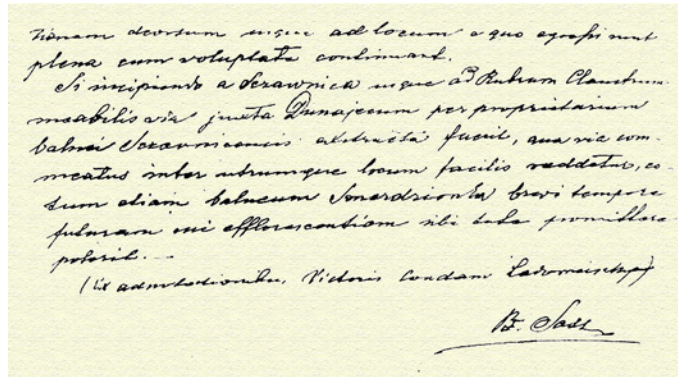 deorsum usque ad locum a quo egressi sunt
plena cum voluptate continuant.
Si incipiendo a Szczawnica usque ad Rubrum Claustrum
meabilis via juxta Dunajecum per proprietarium
balnei Szczavnicensis exstructa fuerit, qua via com-
meatus inter utrumque locum facilis reddetur, eo
tum etiam balneum Smerdzionka brevi tempore
futuram sui efflorescentiam sibi tuto promittere
poterit. —
(Ex adnotationibus Victoris condam
B. Sass